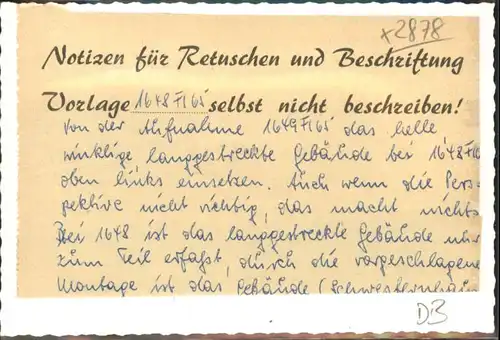 x2878
Notizen für Retuschen und Beschriftung
Vorlage 1648 FI 65 selbst nicht beschreiben!
Von der Aufnahme 1649 FI 65 das helle,
winklige langgestreckte Gebäude bei 1648 FI 65
oben links einsetzen. Auch wenn die Pers-
pektive nicht richtig, das macht nichts.
Bei 1648 ist das langgestreckte Gebäude nur
zum Teil erfaßt, durch die vorgeschlagene
Montage ist das Gebäude (Schwesternhaus
DB